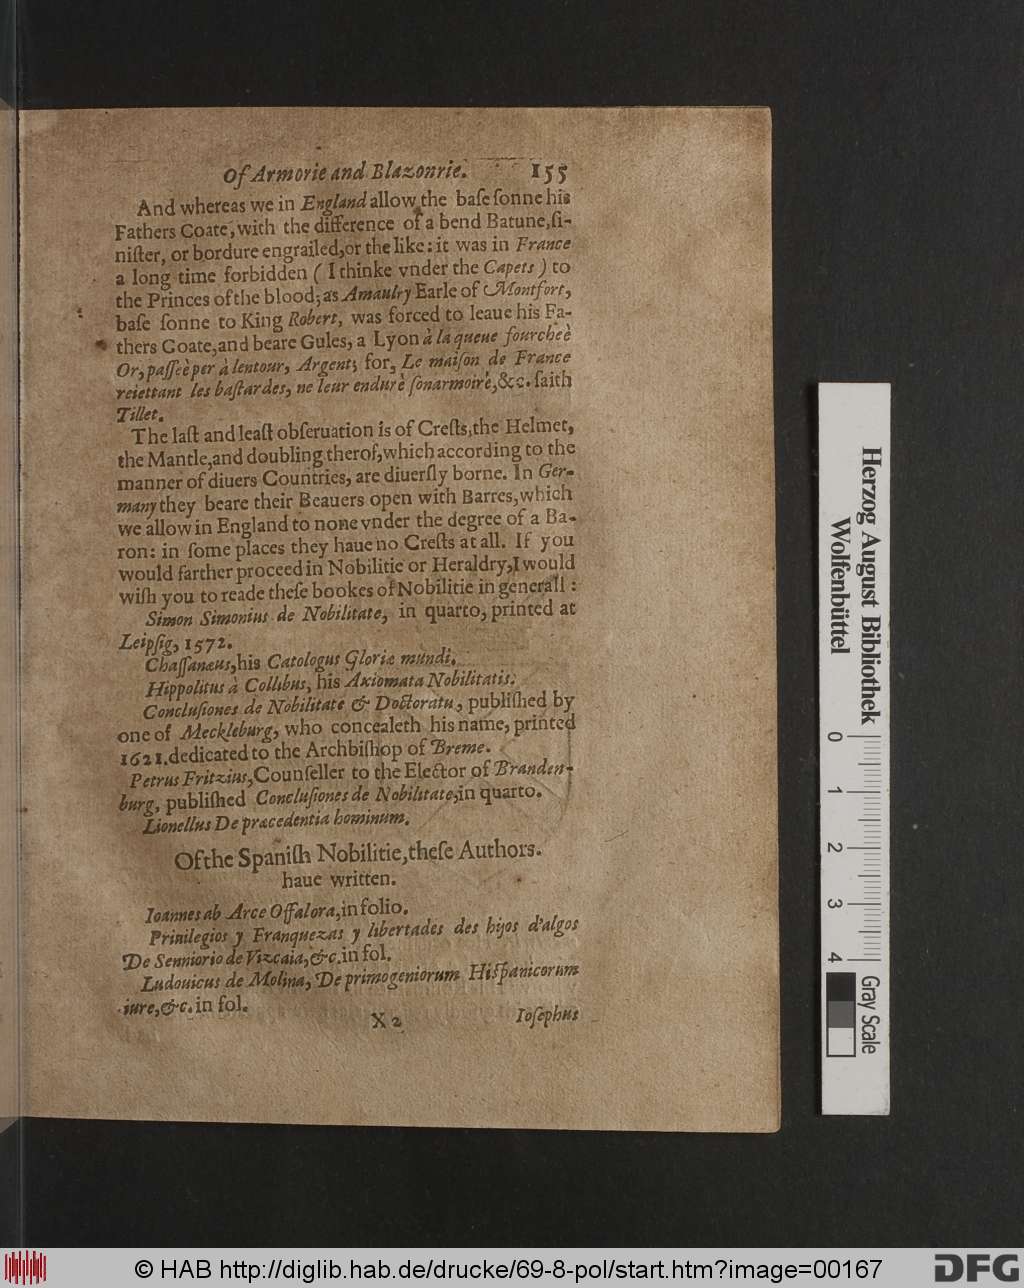 Of Armorie and Blazonrie. 155
And whereas we in England allow the baſe ſonne his
Fathers Coate, with the difference of a bend Batune, ſi-
niſter, or bordure engrailed, or the like: it was in France
a long time forbidden ( I thinke vnder the Capets ) to
the Princes of the blood; as Amaulry Earle of Montfort,
baſe ſonne to King Robert, was forced to leaue his Fa-
thers Coate, and beare Gules, a Lyon à la queue fourcheè
Or, paſſeè per à lentour, Argent; for, Le maiſon de France
reiettant les baſtardes, ne leur endurè ſonarmoirè, &c. ſaith
Tillet.
The laſt and leaſt obſeruation is of Creſts, the Helmet,
the Mantle, and doubling therof, which according to the
manner of diuers Countries, are diuerſly borne. In Ger-
many they beare their Beauers open with Barres, which
we allow in England to none vnder the degree of a Ba-
ron: in ſome places they haue no Creſts at all. If you
would farther proceed in Nobilitie or Heraldry, I would
wiſh you to reade theſe bookes of Nobilitie in generall :
Simon Simonius de Nobilitate, in quarto, printed at
Leipſig, 1572.
Chaſſanæus, his Catologus Gloriæ mundi.
Hippolitus à Collibus, his Axiomata Nobilitatis.
Concluſiones de Nobilitate & Doctoratu, publiſhed by
one of Meckleburg, who concealeth his name, printed
1621. dedicated to the Archbiſhop of Breme.
Petrus Fritzius, Counſeller to the Elector of Branden-
burg, publiſhed Concluſiones de Nobilitate, in quarto.
Lionellus De præcedentia hominum.
Of the Spaniſh Nobilitie, theſe Authors.
haue written.
Ioannes ab Arce Offalora, in folio.
Priuilegios y Franquezas y libertades des hijos d'algos
De Senniorio de Vizcaia, &c. in fol.
Ludouicus de Molina, De primogeniorum Hiſpanicorum
iure, &c. in fol.
X 2 Ioſephus
Herzog August Bibliothek
Wolfenbüttel
0 1 2 3 4
Gray Scale
© HAB http://diglib.hab.de/drucke/69-8-pol/start.htm?image=00167
DFG